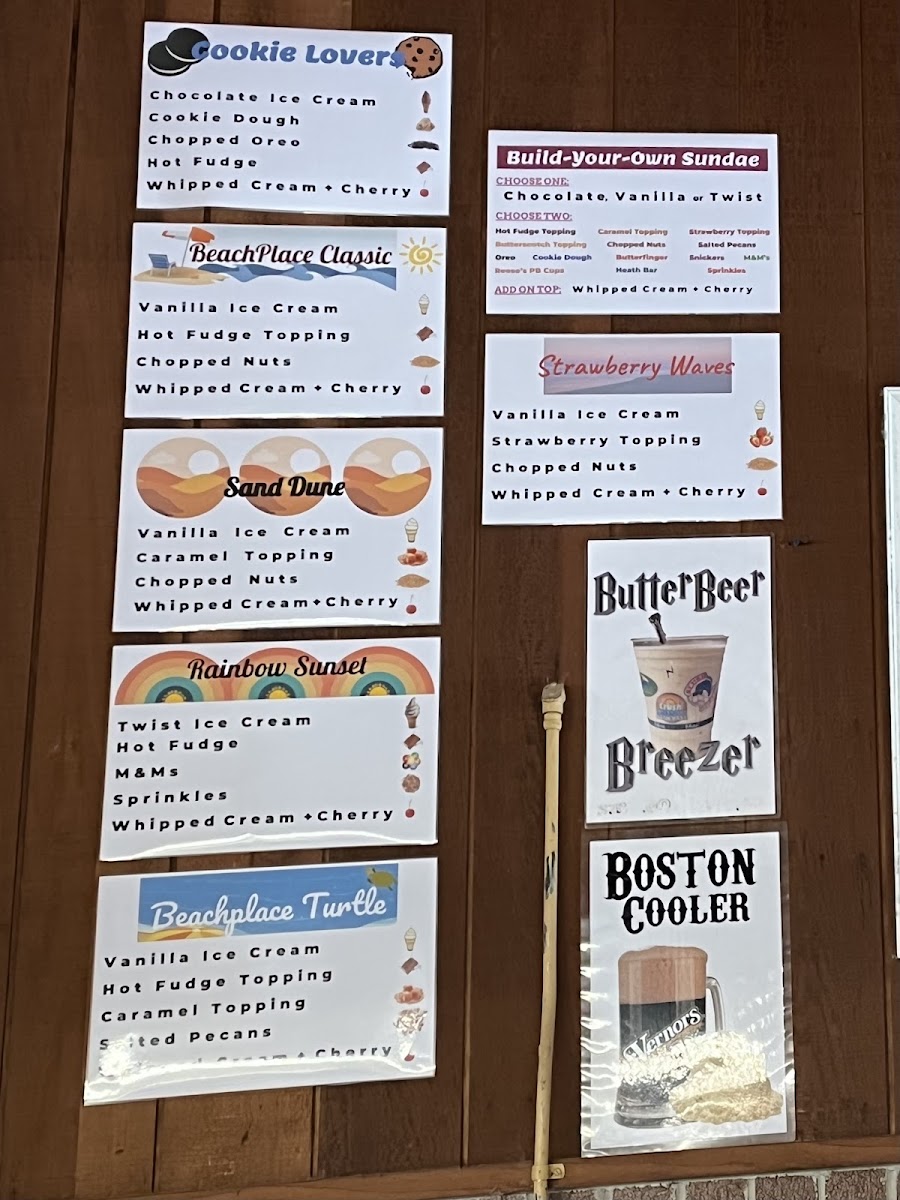 Cookie Lovers
Chocolate Ice Cream
Cookie Dough
Chopped Oreo
Hot Fudge
Whipped Cream + Cherry
BeachPlace Classic
Vanilla Ice Cream
Hot Fudge Topping
Chopped Nuts
Whipped Cream + Cherry
Sand Dune
Vanilla Ice Cream
Caramel Topping
Chopped Nuts
Whipped Cream + Cherry
Rainbow Sunset
Twist Ice Cream
Hot Fudge
M&Ms
Sprinkles
Whipped Cream + Cherry
Beachplace Turtle
Vanilla Ice Cream
Hot Fudge Topping
Caramel Topping
Salted Pecans
Cream + Cherry
Build-Your-Own Sundae
CHOOSE ONE:
Chocolate, Vanilla or Twist
CHOOSE TWO:
Hot Fudge Topping Caramel Topping Strawberry Topping
Butterscotch Topping Chopped Nuts Salted Pecans
Oreo Cookie Dough Butterfinger Snickers M&M's
Reese's PB Cups Heath Bar Sprinkles
ADD ON TOP: Whipped Cream + Cherry
Strawberry Waves
Vanilla Ice Cream
Strawberry Topping
Chopped Nuts
Whipped Cream + Cherry
ButterBeer
Breezer
BOSTON
COOLER
Vernors